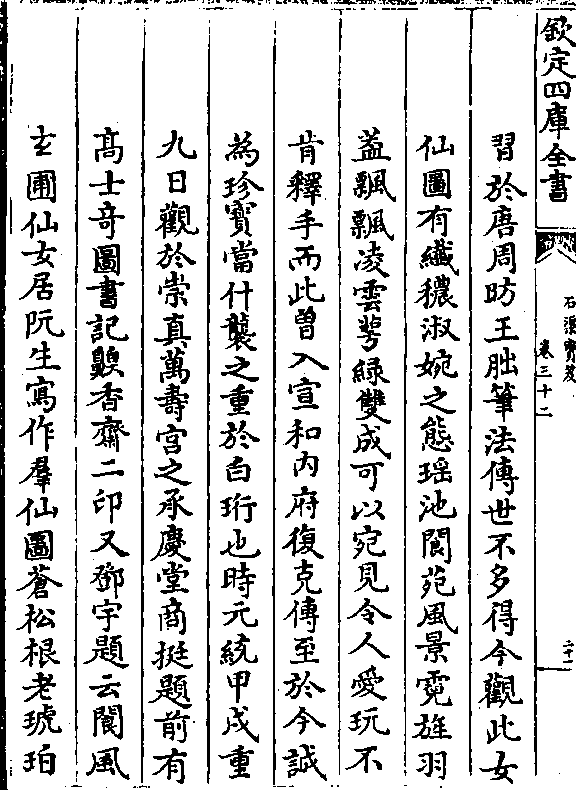 欽定四庫全書
石渠寳笈
卷三十二
二十二
習於唐周昉王朏筆法傳世不多得今觀此女
仙圖有纖穠淑婉之態瑶池閬苑風景霓旌羽
葢飄飄凌雲萼緑雙成可以宛見令人愛玩不
肯釋手而此曽入宣和内府復克傳至於今誠
為珍寳當什襲之重於白珩也時元統甲戌重
九日觀於崇真萬壽宫之承慶堂商挺題前有
髙士竒圖書記㲄香齋二印又鄧宇題云閬風
玄圃仙女居阮生寫作羣仙圖蒼松根老琥珀